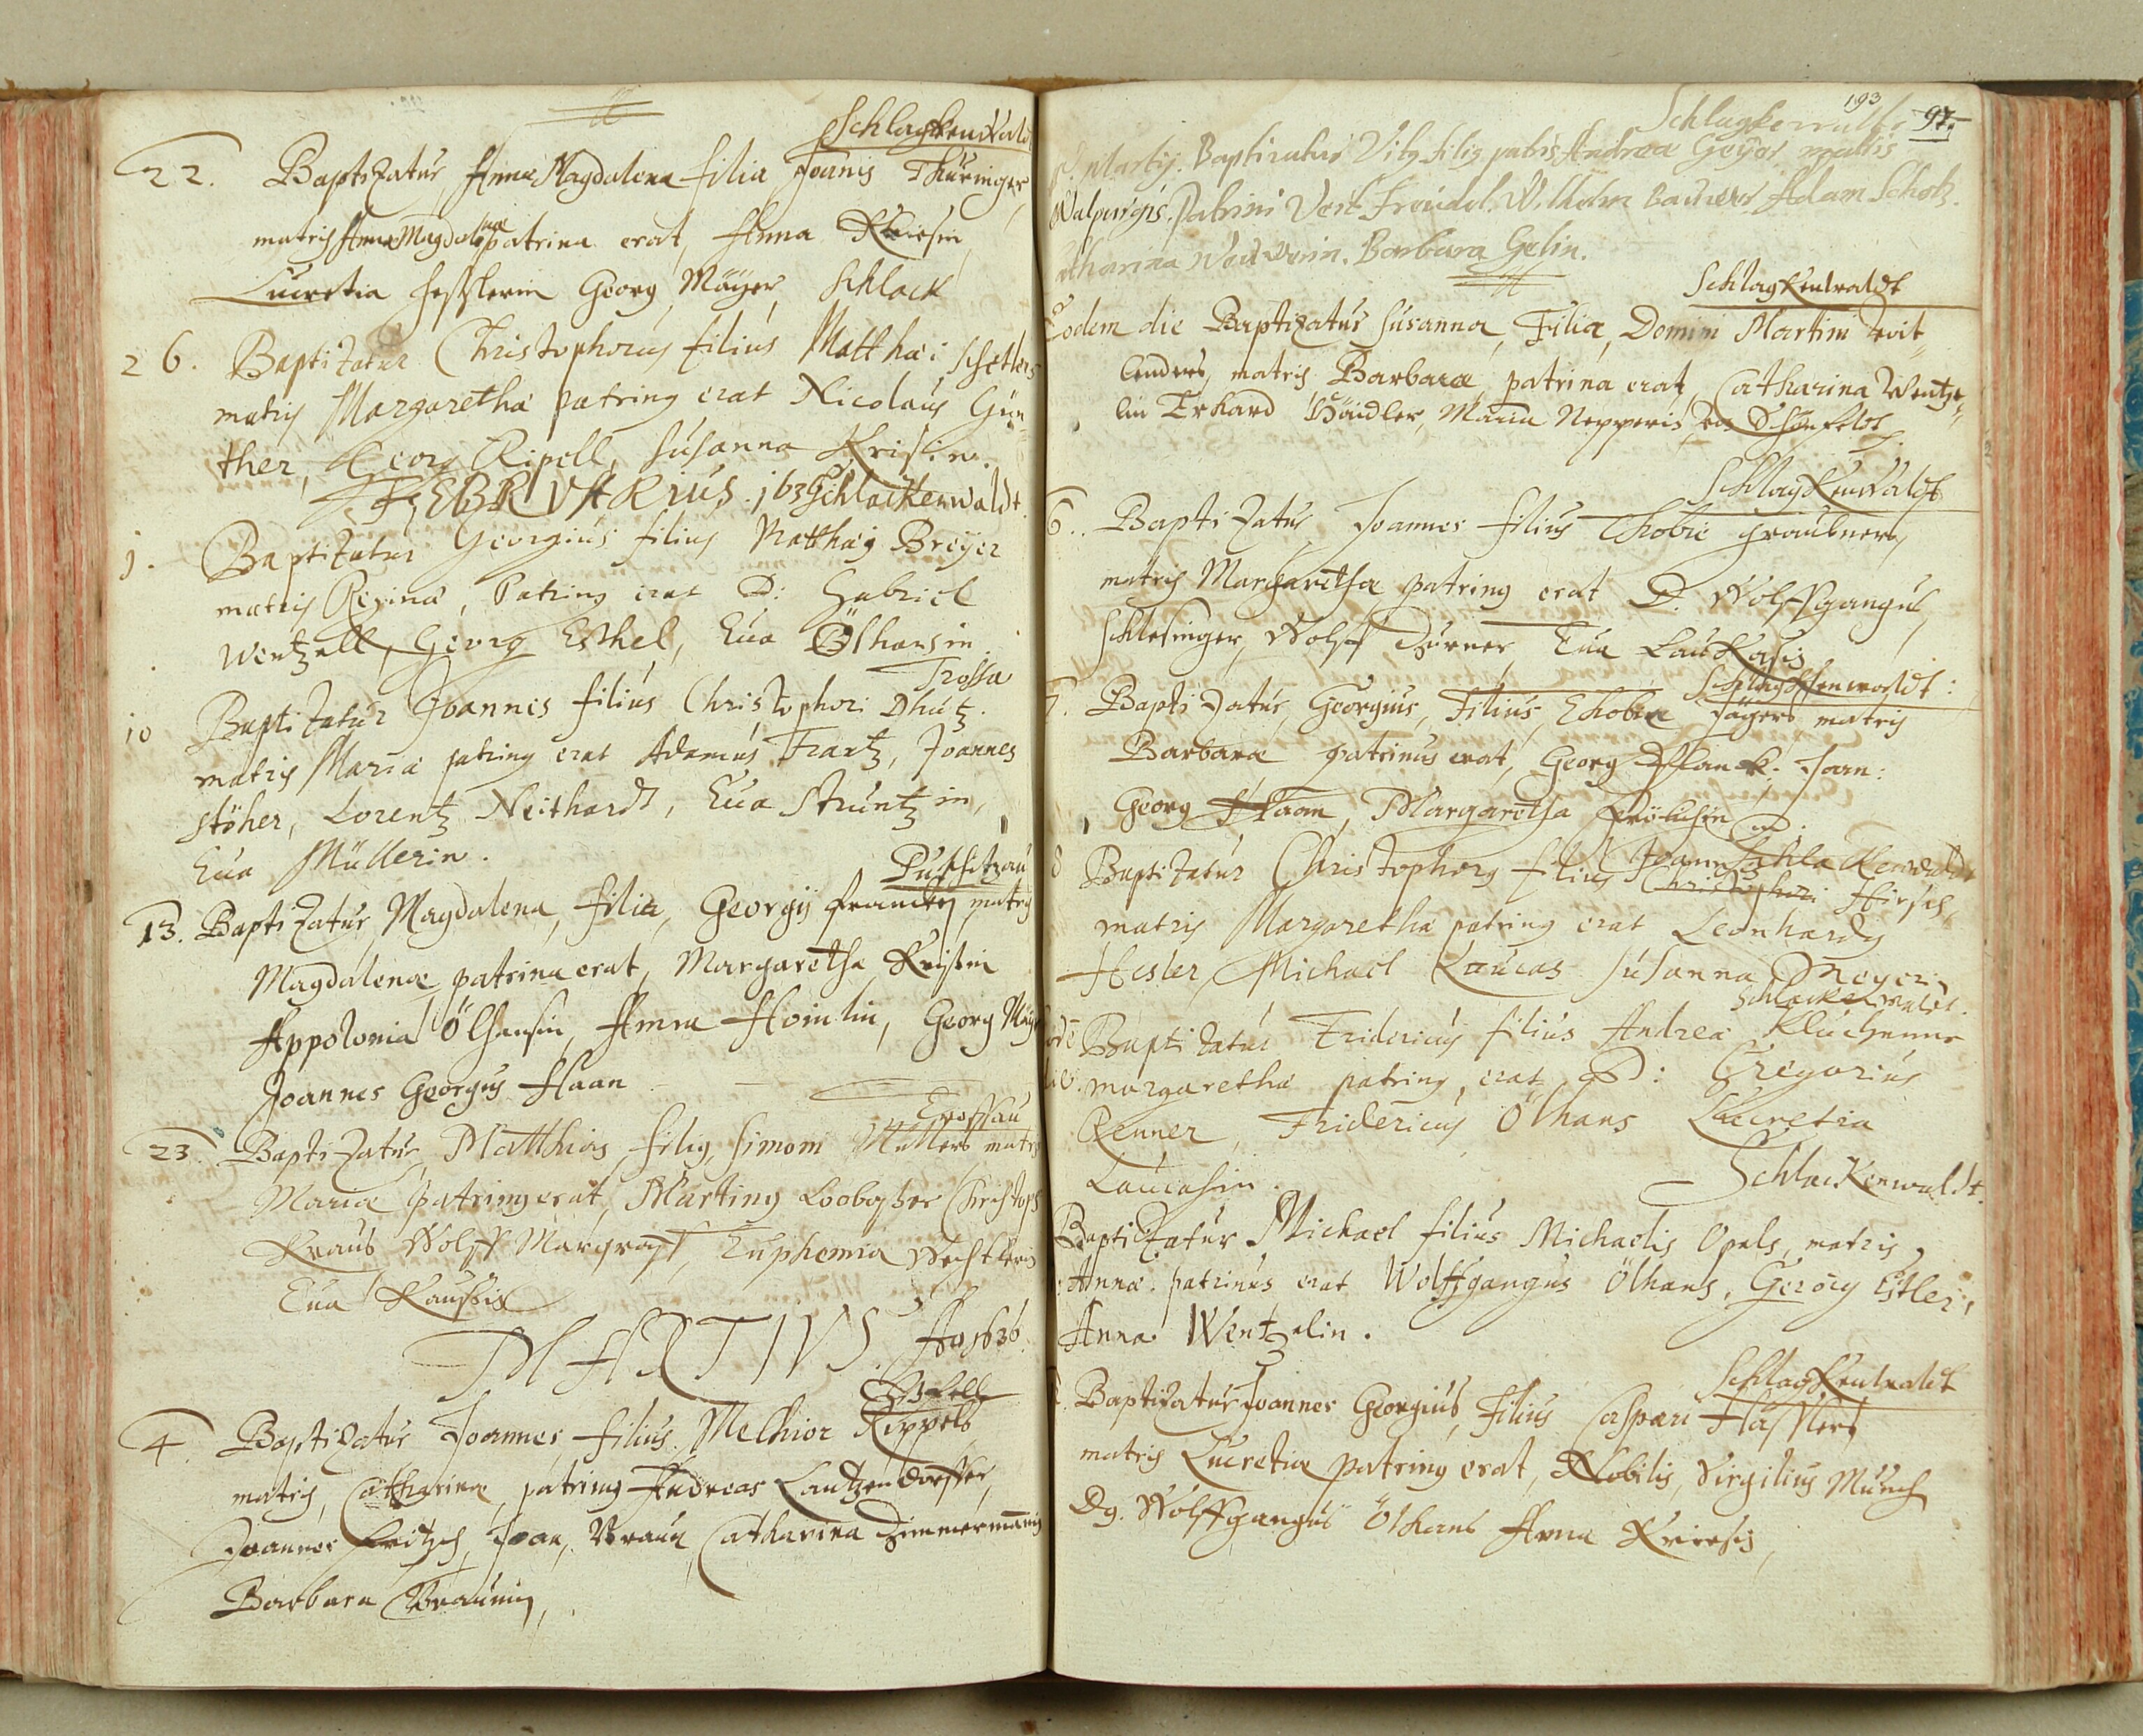 Schlagkenwald
22. Baptizatur Anna Magdalena filia Joanis Thüringer
matris Anna Magdalenae patrina erat, Anna Kriesin
Lucretia Hesslerin Georg Mäyer Schlack
26. Baptizatur Christophorus filius Matthaei
matris Margaretha patrinus erat Nicolaus Gün
ther, Georg Ripell, Susanna Krisin.
FEBRVARIUS. 163 Schlackenwaldt.
1. Baptizatur Georgius filius Matthaei Breyer
matris Reginae, Patrinus erat D: Gabriel
Wentzell, Georg Esthel, Eua Ölhansin.
Trossa
10 Baptizatur Joannes filius Christophori
matris Maria patrinus erat Adamus Frantz, Joannes
Stöher, Lorentz Neithardt, Eua Stuntzin,
Eua Müllerin.
13. Baptizatur Magdalena, filia, Georgij matris
Magdalenae patrina erat, Margaretha Krissin
Appolonia Ölhansin, Anna Hoinlin, Georg
Joannes Georgius Haan
Trossau
23. Baptizatur Matthias filius, Simoni Müllers matris
Mariae patrinus erat, Martinus Christoph
Kraus, Wolff Margraff, Euphemia
Eua
MARTIVS. Ao 1636.
4. Baptizatur Joannes filius Melhior Rippels
matris Catharinae, patrinus Andreas Lantzendorffer,
Joannes Fritzsch, Joan, Braun Catharina Zimmermannis
Barbara Braunin,
193
97.
Schlagkenwaldt
Martij. Baptizatus Vitus filius patris Andrea Geyer matris
Walpurgis. Patrini Veit Freudel. Wilhelm Adam Scholz.
Barbara Gelin.
Schlagkenwaldt
Eodem die Baptizatus Susanna, Filia, Domini Martini Veit
Endres, matris Barbarae, patrina erat, Catharina Wentze
lin Erhard Häidler, Maria Schönfeldt
Schlagkenwaldt
6. Baptizatur Joannes filius Thobie
matris Margarethae patrinus erat D. Wolffgangus,
Schlesinger, Wolff Eua
Schlackenwaldt:
7. Baptizatur, Georgius, Filius, Thobiae Jägers matris
Barbarae patrinus erat, Georg Joan:
Georg Haan, Margaretha Frölichin
8 Baptizatur Christophorus filius Joann Schlackenwaldt
Christophori Hirsch,
matris Margaretha patrinus erat Leonhardus
Hesler Michael Laucas Susanna Meyerin
Schlackewaldt.
Baptizatur Fridericus filius Andrea
margaretha patrinus, erat D: Gregorius
Renner, Fridericus Ölhans Lucretia
Laucasin.
Schlackenwaldt.
Baptizatur Michael filius Michaelis Opels, matris
Annae. patrinus erat Wolffgangus Ölhans, Georg Estler,
Anna Wentzelin.
Schlagkenwaldt
Baptizatur Joannes Georgius, Filius Caspari Hässlers
matris Lucretiae patrinus erat, Nobilis, Virgilius Münch
Dg. Wolffgangus Ölhans Anna Kriesis,